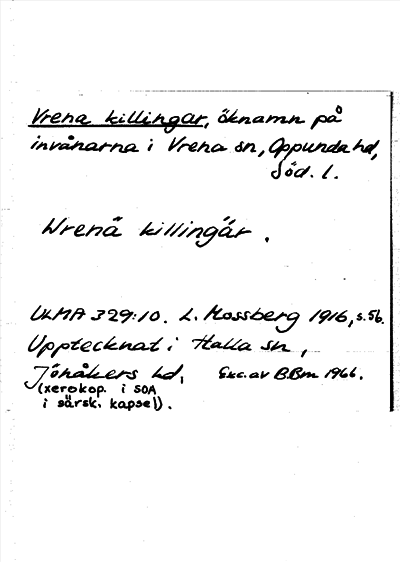 Vrena killingar, öknamn på
invånarna i Vrena sn, Oppunda hd,
Söd. l.
Wrenä killingär.
ULMA 329:10. L. Mossberg 1916, s. 56.
Upptecknat i Halla sn,
Jönåkers hd, Exc. av B.Bm 1966.
(xerokop. i SOA
i särsk. kapsel).